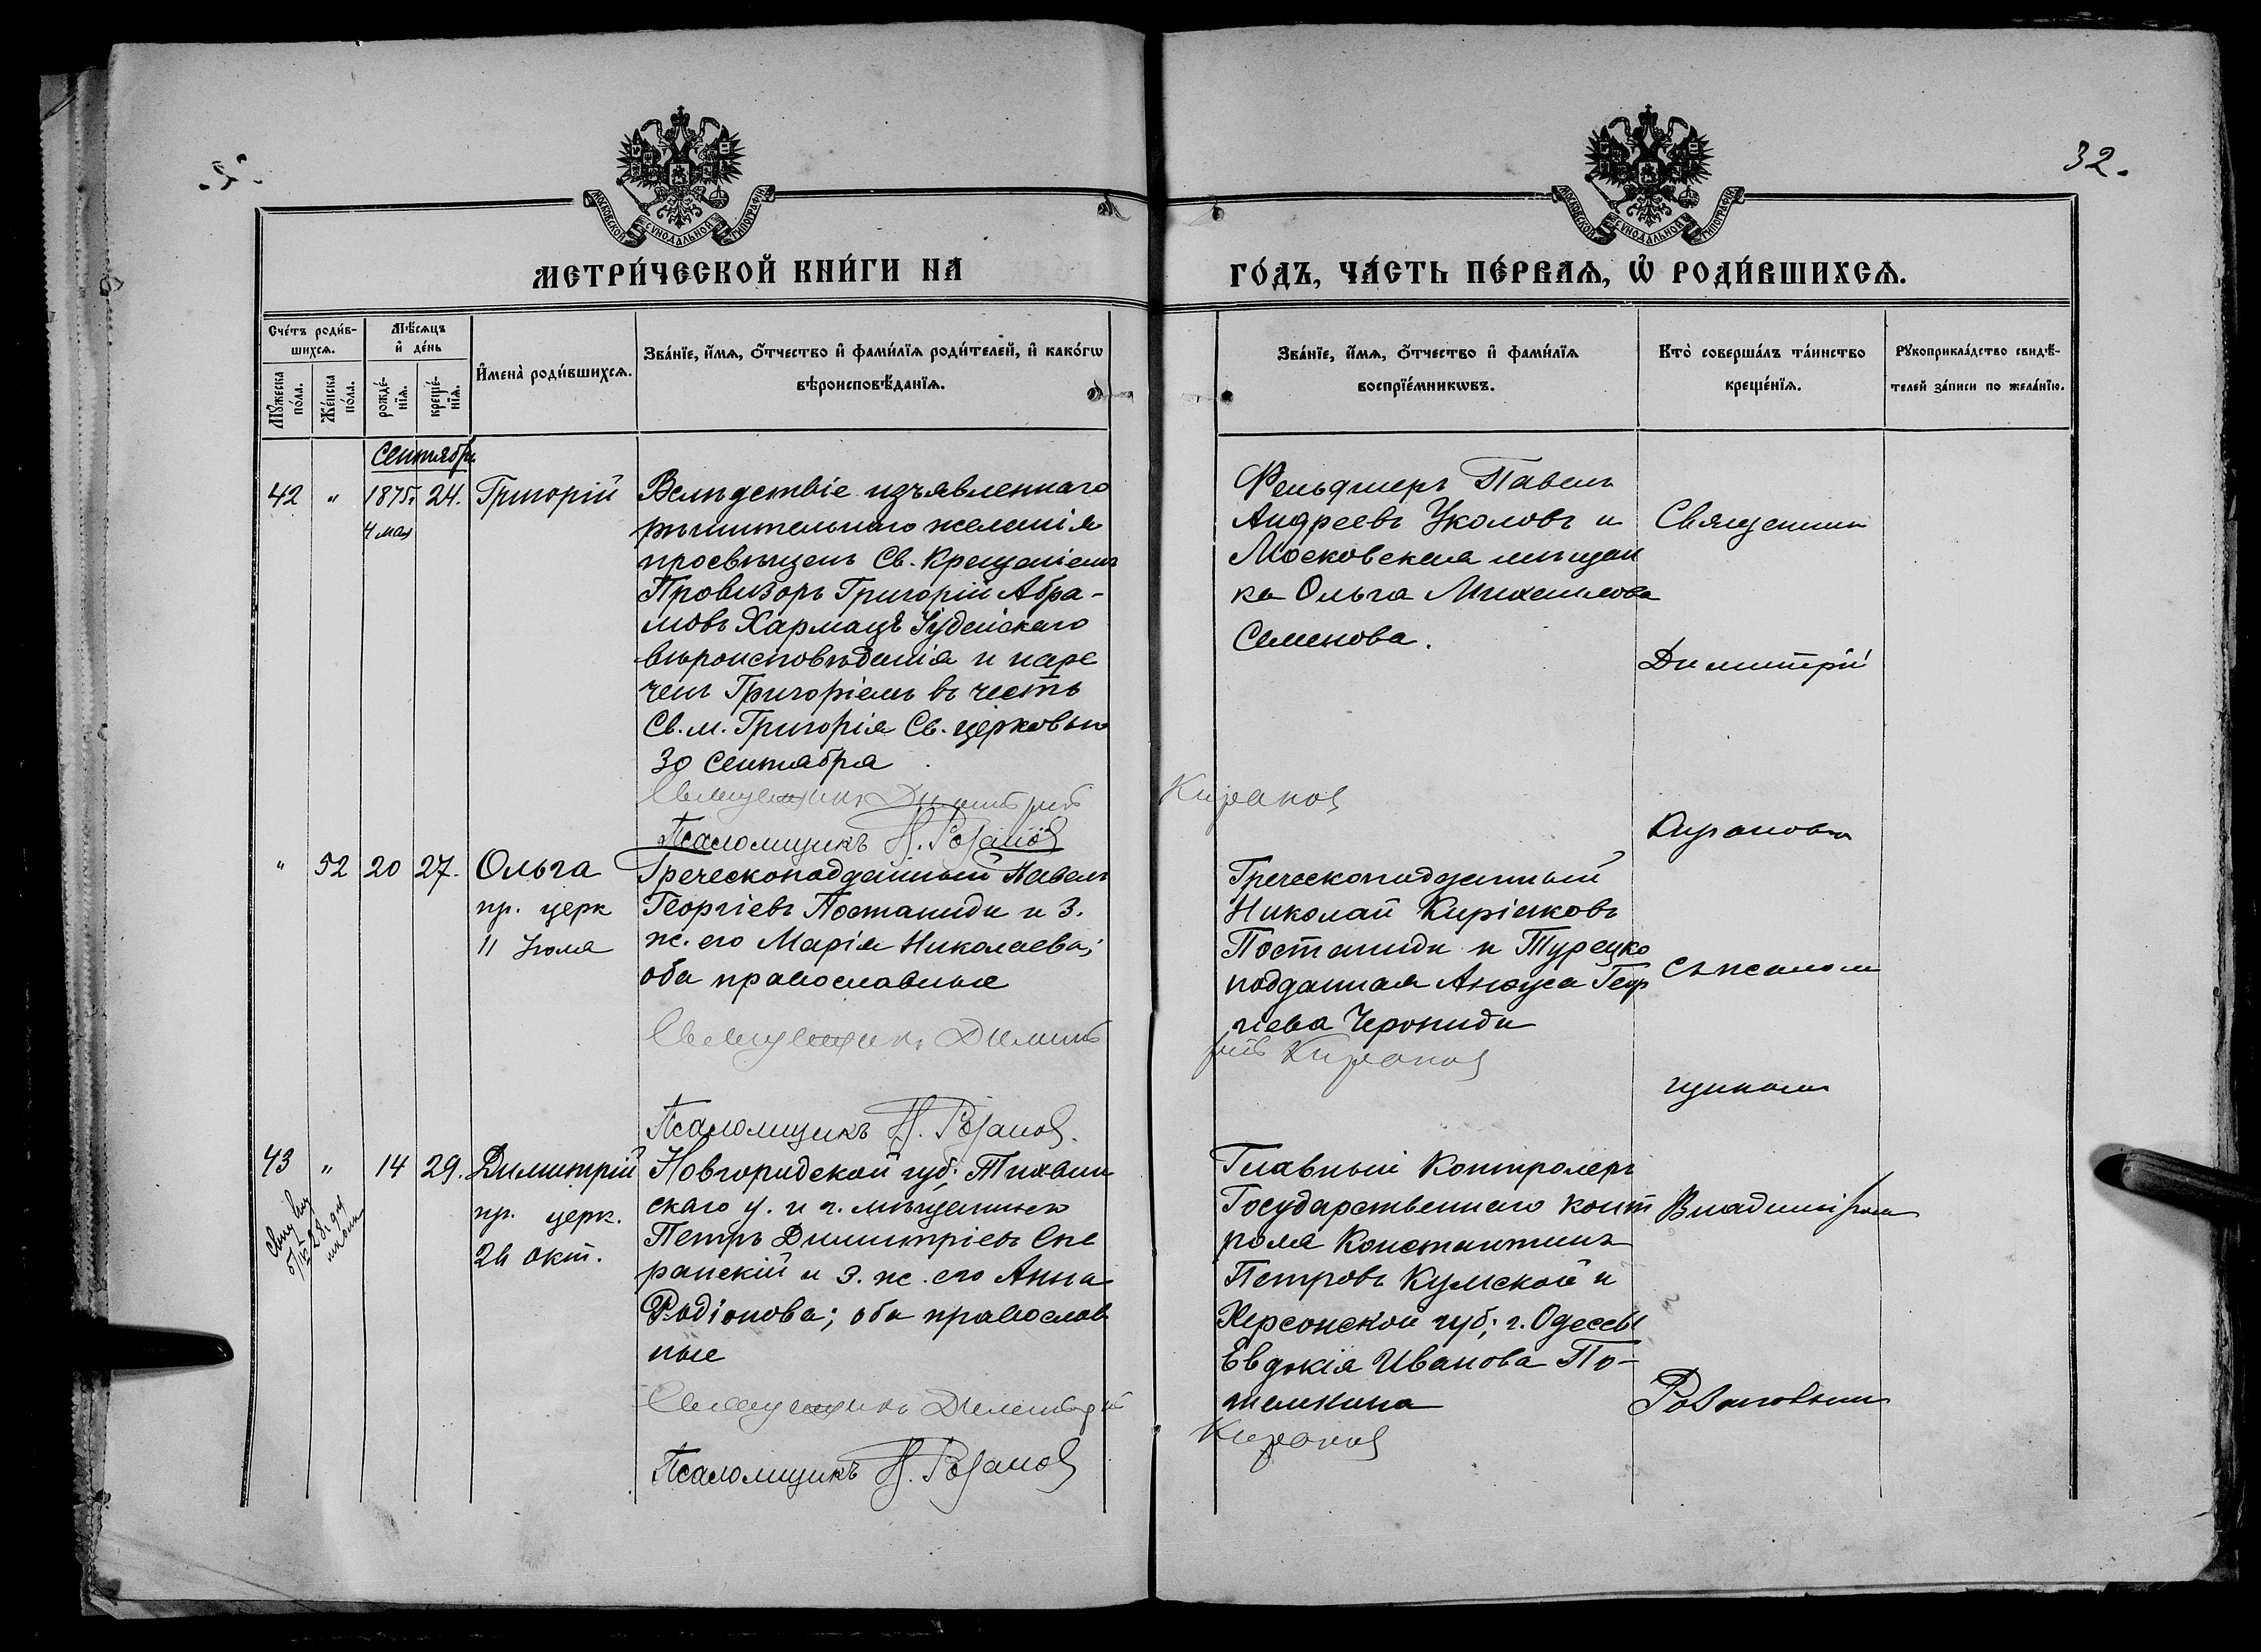 32.
МОСКОВСКОЙ СѴНОДАЛЬНОЙ ТИПОГРАФІИ
МОСКОВСКОЙ СѴНОДАЛЬНОЙ ТИПОГРАФІИ
МЕТРИ́ЧЕСКОЙ КНИ́ГИ НА ГО́ДЪ, ЧА́СТЬ ПЕ́РВАѦ, Ѡ҆ РОДИ́ВШИХСѦ.
Сче́тъ роди́в-
шихсѧ.
Мꙋ́жеска по́ла.
Же́нска по́ла.
Мѣ́сѧцъ
и҆ де́нь
рожде́-
нїѧ.
креще́-
нїѧ.
И҆мена̀ роди́вшихсѧ.
Зва́нїе, и҆́мѧ, ѻ҆́тчество и҆ фами́лїѧ роди́телей, и҆ како́гѡ
вѣроисповѣ́данїѧ.
Зва́нїе, и҆́мѧ, ѻ҆́тчество и҆ фами́лїѧ
воспрїе́мникѡвъ.
Кто̀ соверша́лъ та́инство
креще́нїѧ.
Рꙋкоприкла́дство свидѣ́-
телей за́писи по жела́нїю.
Сентябрь
42 " 1875г. 24. Григорій
4 мая
Вслѣдствіе изъявленнаго
рѣшительнаго желанія
просвѣщенъ Св. Крещеніемъ
Провизоръ Григорій Абра-
мовъ Хармацъ Іудейскаго
вѣроисповѣданія и наре
ченъ Григоріемъ въ честь
Св. м. Григорія Св. церковью
30 Сентября
Священникъ Димитрій Киранов
Псаломщикъ Н. Розанов
Фельдшеръ Павелъ
Андреевъ Уколовъ и
Московская мѣщан
ка Ольга Михаилова
Семенова.
Священник
Димитрій
Кирановъ
съ псалом
щикомъ
Владиміром
Розановымъ
" 52 20 27. Ольга
пр. церк
11 Іюля
Греческоподданный Павелъ
Георгіевъ Постаниди и з.
ж. его Марія Николаева;
оба православные
Священникъ Димит
рій Киранов
Псаломщикъ Н. Розанов.
Греческоподданный
Николай Киріаковъ
Постаниди и Турецко
подданная Геор
гіева Чераниди
43 " 14 29. Димитрій
пр. церк.
26 окт.
Новгородской губ. Тихвин
скаго у. и г. мѣщанинъ
Петръ Димитріевъ Спе
ранскій и з. ж. его Анна
Родіонова; оба православ
ные
Священникъ Димитрій
Киранов
Псаломщикъ Н. Розанов
Главный Контролеръ
Государственнаго конт
роля Константинъ
Петровъ Кумской и
Херсонской губ; г. Одессы
Евдокія Иванова По-
темкина